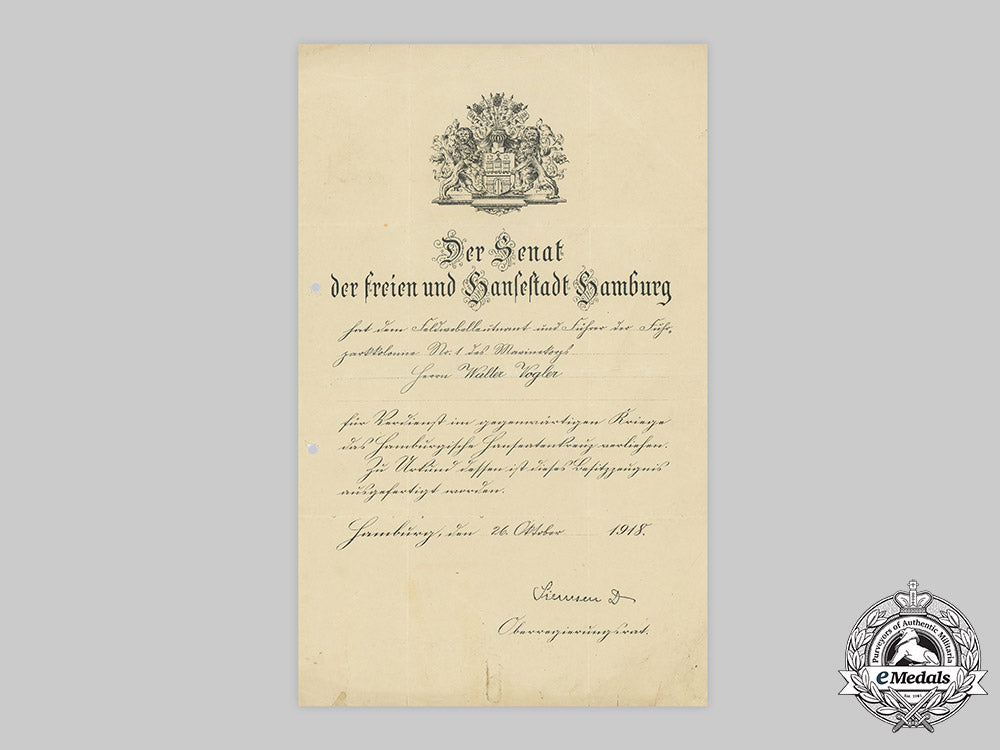 Der Senat
der freien und Hansestadt Hamburg
hat dem Feldwebelleutnant und Führer der Fuhr-
parkkolonne Nr. 1 des Marinekorps
Herrn Walter Vogler
für Verdienst im gegenwärtigen Kriege
das Hamburgische Hanseatenkreuz verliehen.
Zu Urkund dessen ist dieses Besitzzeugnis
ausgefertigt worden.
Hamburg, den 26. Oktober 1918.
Oberregierungsrat.
Purveyors of Authentic Militaria
eMedals